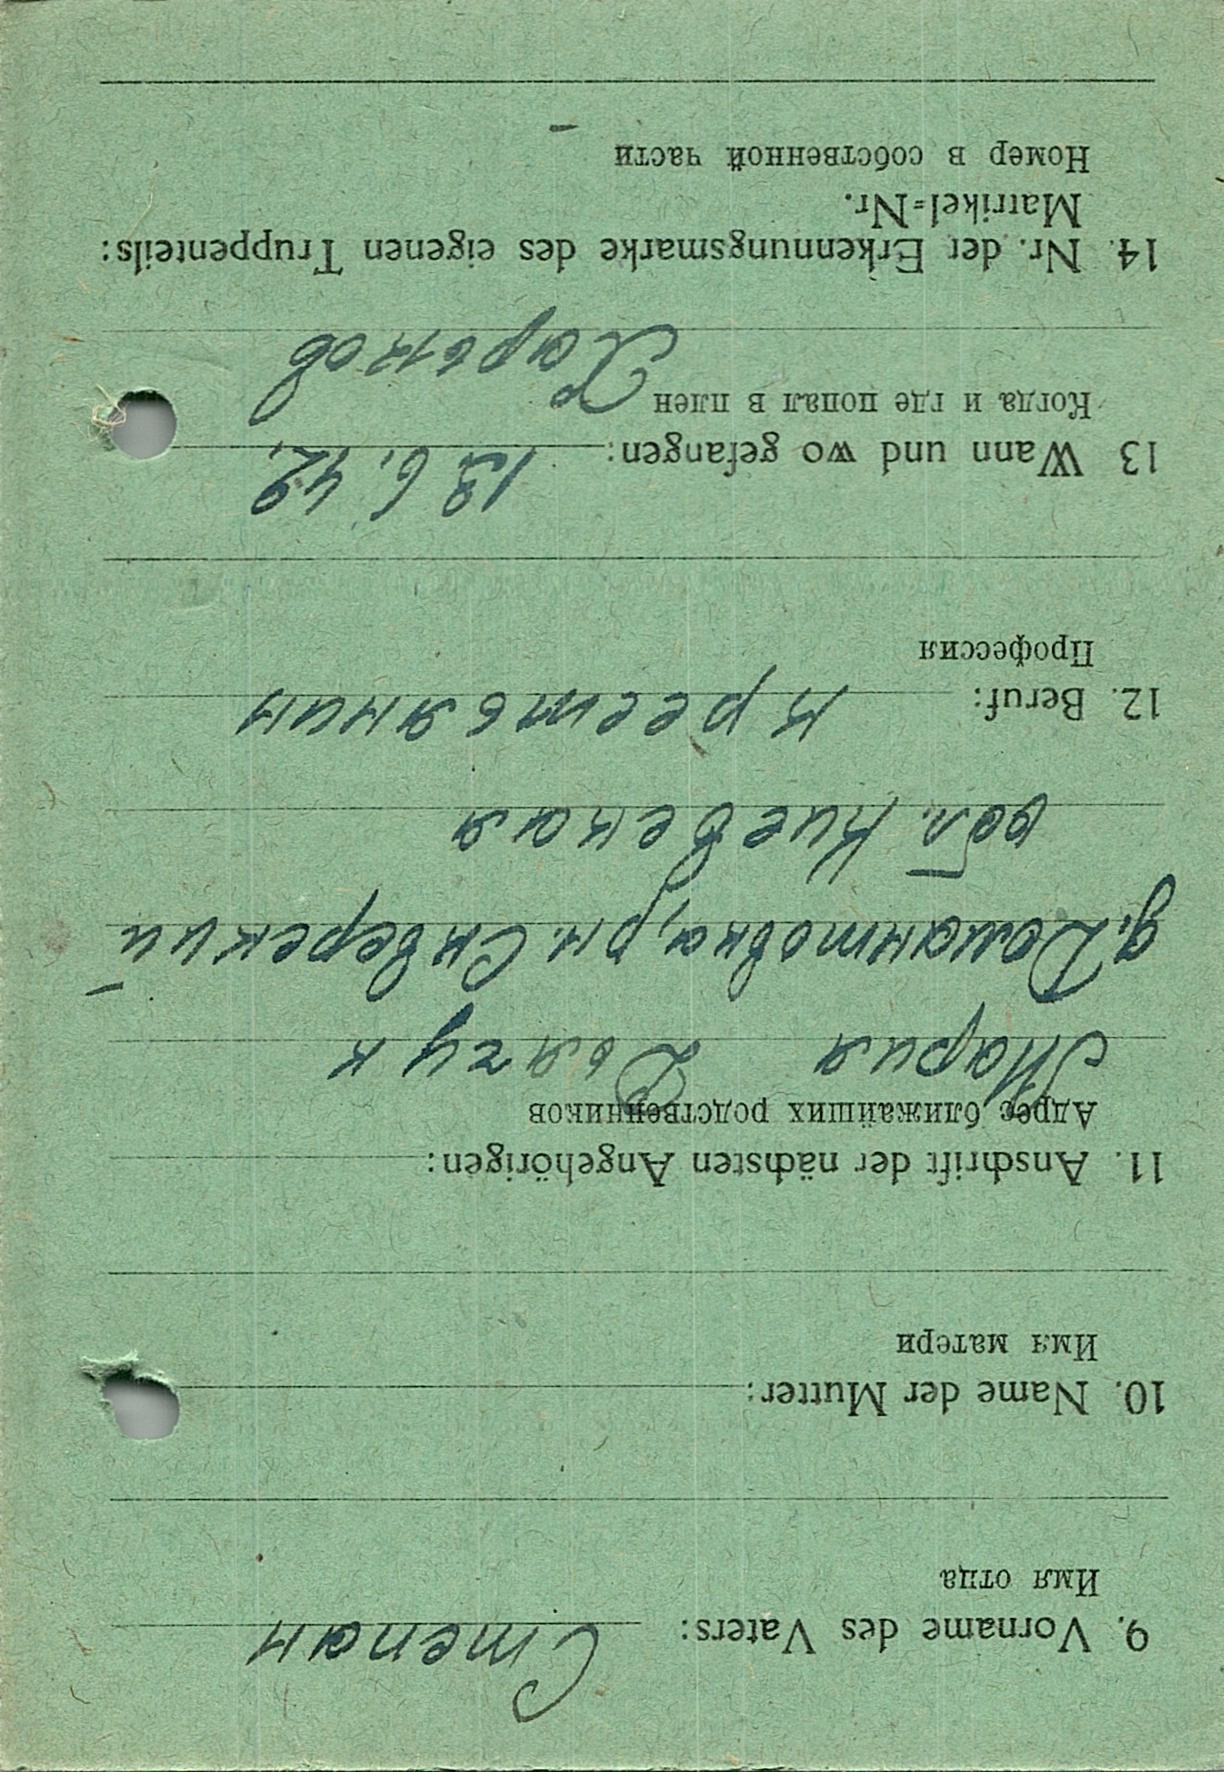 9. Vorname des Vaters: Степан
Имя отца
10. Name der Mutter:
Имя матери
11. Anschrift der nächsten Angehörigen:
Адрес ближайших родственников
Мария Дьячук
д. Домантовка, рн. Сквирский
обл. Киевская
12. Beruf: крестьянин
Профессия
13 Wann und wo gefangen: 12.6.42.
Когда и где попал в плен Харьков
14. Nr. der Erkennungsmarke des eigenen Truppenteils:
Matrikel=Nr.
Номер в собственной части
–